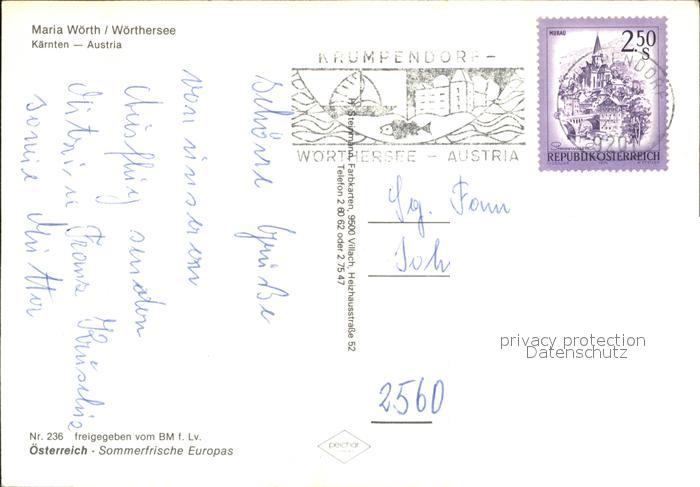 Maria Wörth / Wörthersee
Kärnten — Austria
KRUMPENDORF –
WÖRTHERSEE – AUSTRIA
MURAU
2.50
S
REPUBLIK ÖSTERREICH
9201
Schöne Grüße
von unserem
Ausflug senden
Franz
sowie Mutter
H. Steinmann, Farbkarten, 9500 Villach, Heizhausstraße 52
Telefon 2 60 62 oder 2 75 47
Fam
2560
privacy protection
Datenschutz
Nr. 236 freigegeben vom BM f. Lv.
Österreich - Sommerfrische Europas
pechar